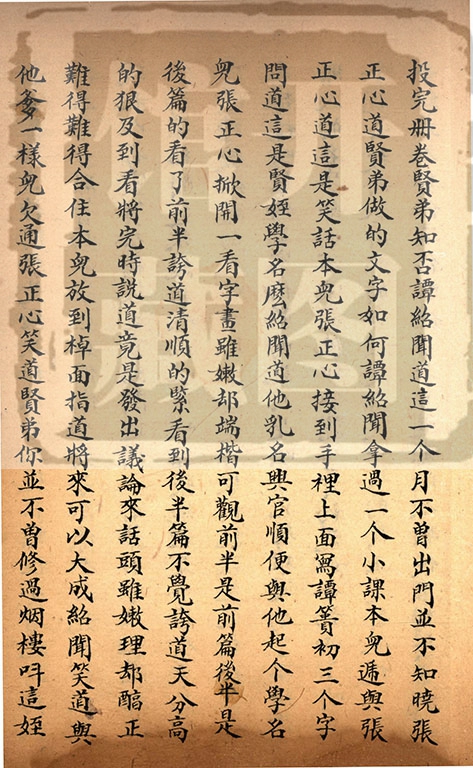 投完册卷賢弟知否譚紹聞道這一个月不曾出門並不知曉張
正心道賢弟做的文字如何譚紹聞拿過一个小課本兒逓與張
正心道這是笑話本兒張正心接到手裡上面寫譚簣初三个字
問道這是賢姪學名麽紹聞道他乳名興官順便與他起个學名
兒張正心掀開一看字畫雖嫩却端楷可觀前半是前篇後半是
後篇的看了前半誇道清順的緊看到後半篇不覺誇道天分高
的狠及到看將完時説道竟是發出議論來話頭雖嫩理却醕正
難得難得合住本兒放到棹面指道將來可以大成紹聞笑道與
他爹一樣兒欠通張正心笑道賢弟你並不曾修過烟樓呌這姪
开图
馆藏